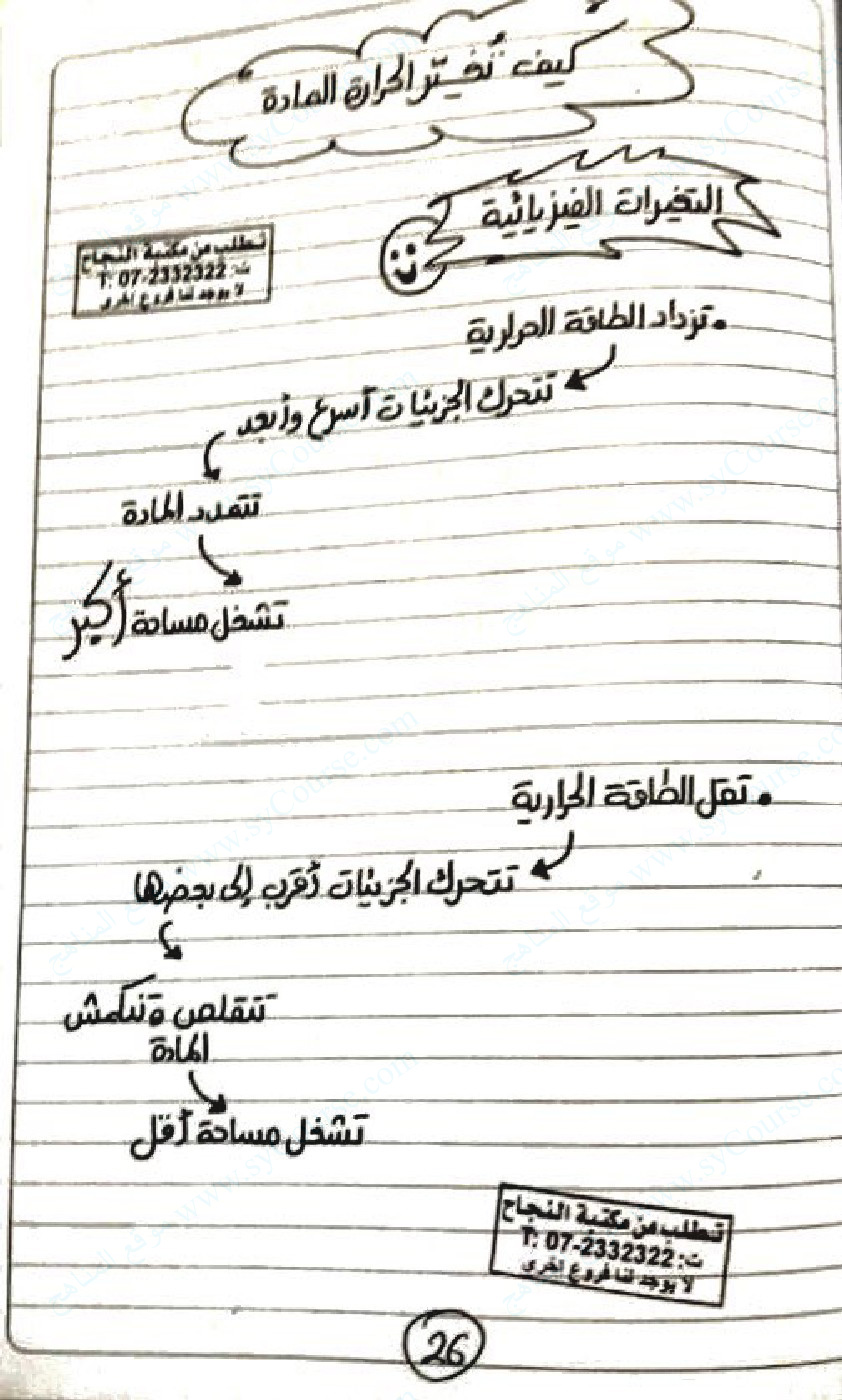 كيف تُغيّر الحرارة المادة
التغيرات الفيزيائية
تطلب من مكتبة النجاح
ت: T: 07-2332322
لا يوجد لنا فروع اخرى
• تزداد الطاقة الحرارية
تتحرك الجزيئات أسرع وأبعد
تتمدد المادة
تشغل مساحة أكبر
• تقل الطاقة الحرارية
تتحرك الجزيئات أقرب إلى بعضها
تتقلص وتنكمش
المادة
تشغل مساحة أقل
تطلب من مكتبة النجاح
ت: T: 07-2332322
لا يوجد لنا فروع اخرى
26
موقع المناهج www.syCourse.com